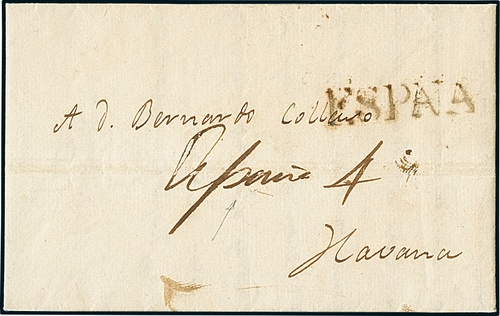 ESPAÑA
A D. Bernardo Collazo
España 4
Havana